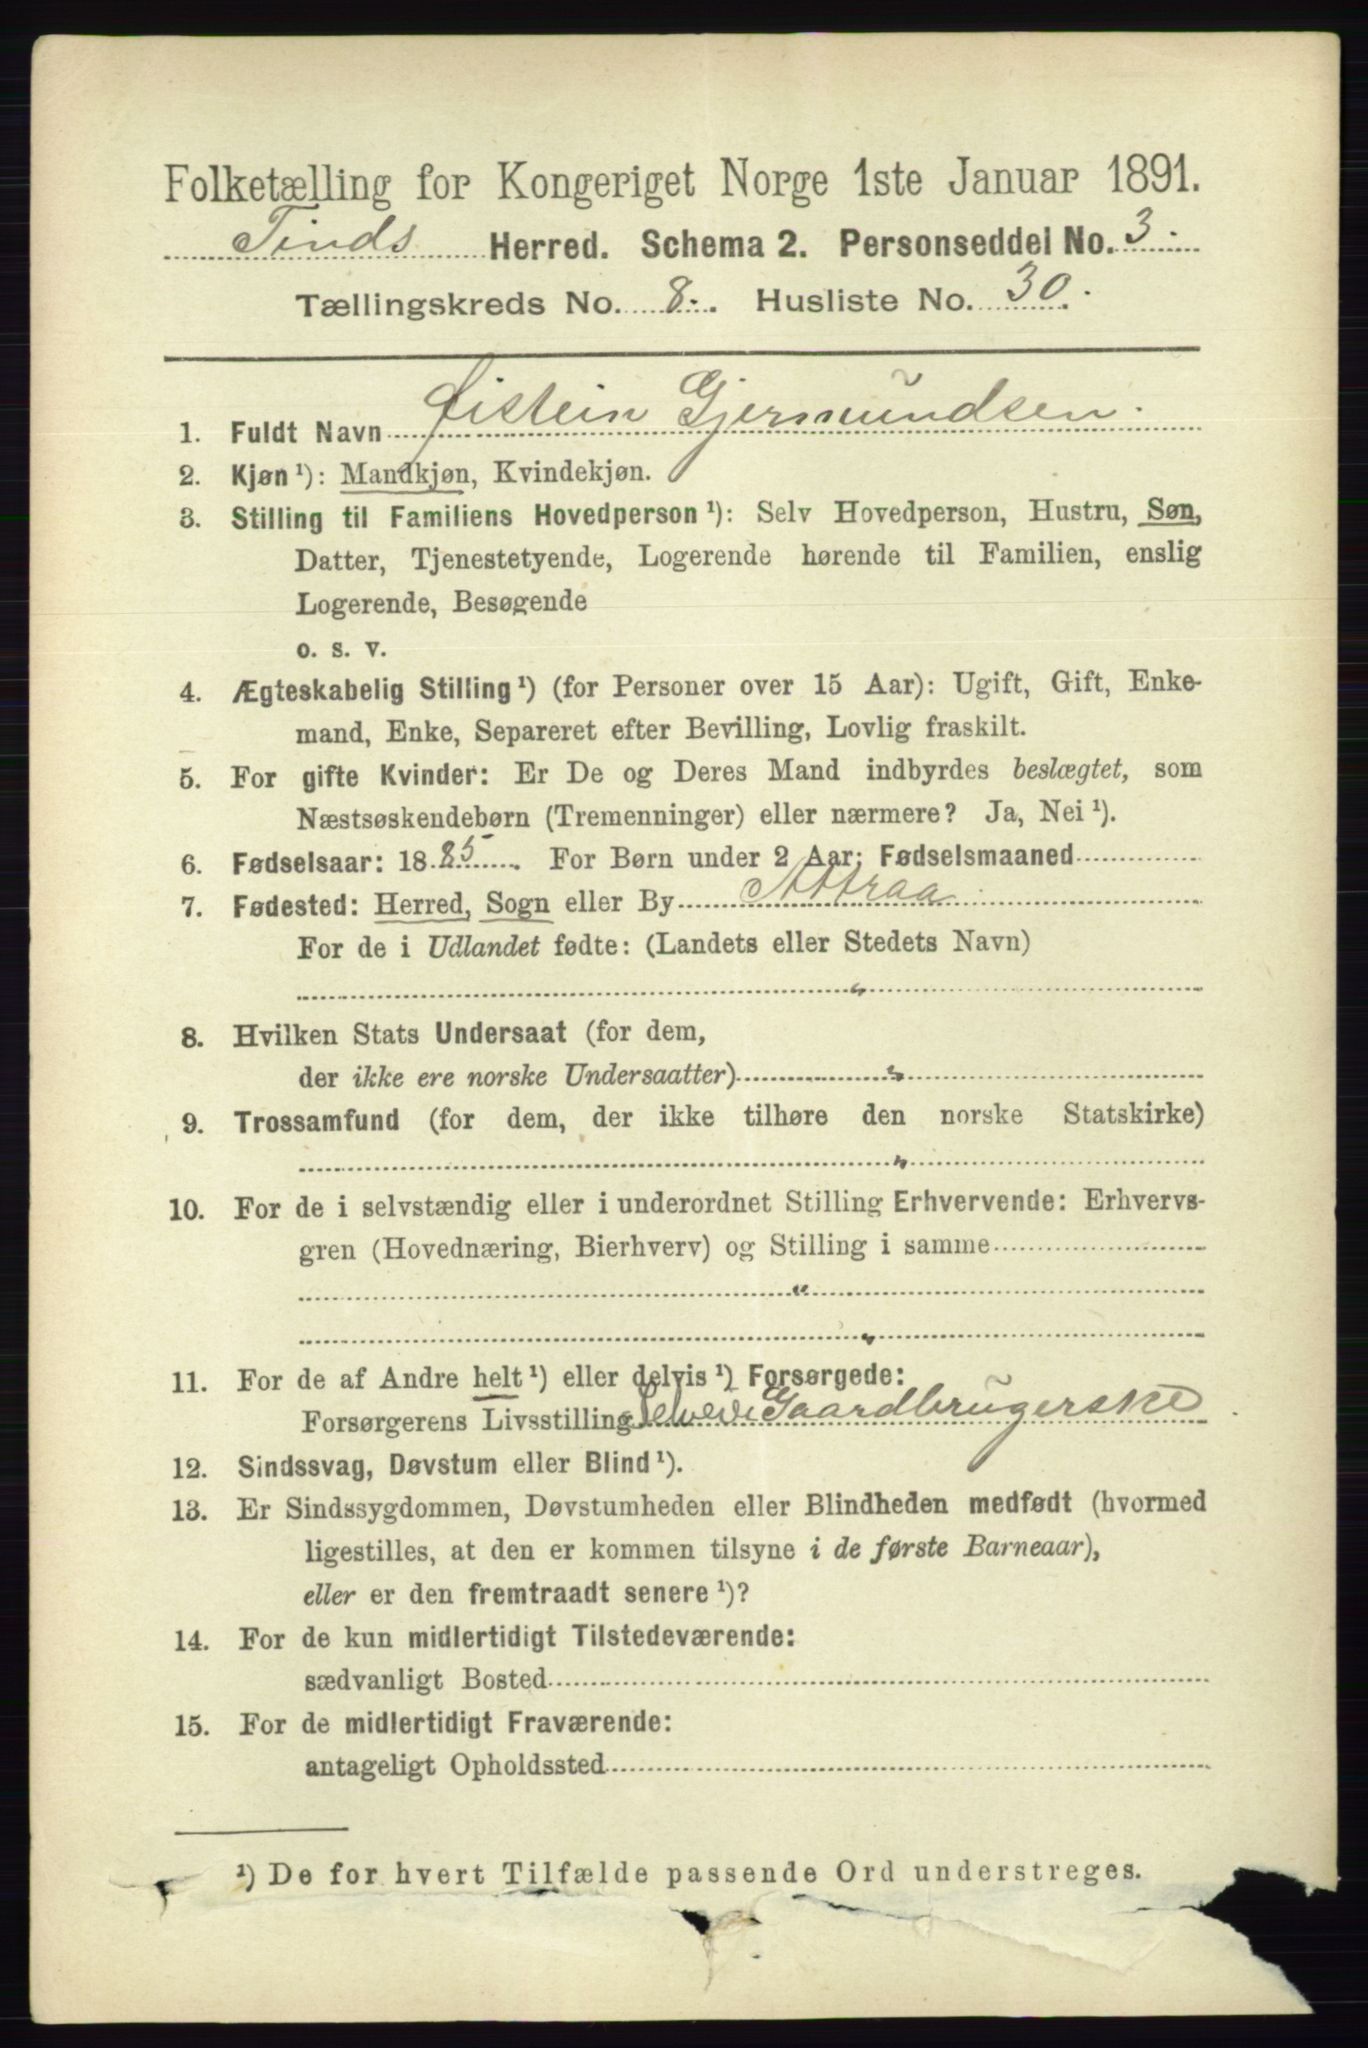 Folketælling for Kongeriget Norge 1ste Januar 1891.
Tinds Herred. Schema 2. Personseddel No. 3.
Tællingskreds No. 8. Husliste No. 30.
1. Fuldt Navn Øistein Gjermundsen.
2. Kjøn¹): Mandkjøn, Kvindekjøn.
3. Stilling til Familiens Hovedperson¹): Selv Hovedperson, Hustru, Søn,
Datter, Tjenestetyende, Logerende hørende til Familien, enslig
Logerende, Besøgende
o. s. v.
4. Ægteskabelig Stilling¹) (for Personer over 15 Aar): Ugift, Gift, Enke-
mand, Enke, Separeret efter Bevilling, Lovlig fraskilt.
5. For gifte Kvinder: Er De og Deres Mand indbyrdes beslægtet, som
Næstsøskendebørn (Tremenninger) eller nærmere? Ja, Nei¹).
6. Fødselsaar: 1885. For Børn under 2 Aar: Fødselsmaaned
7. Fødested: Herred, Sogn eller By Attraa
For de i Udlandet fødte: (Landets eller Stedets Navn)
"
8. Hvilken Stats Undersaat (for dem,
der ikke ere norske Undersaatter) "
9. Trossamfund (for dem, der ikke tilhøre den norske Statskirke)
"
10. For de i selvstændig eller i underordnet Stilling Erhvervende: Erhvervs-
gren (Hovednæring, Bierhverv) og Stilling i samme
"
"
11. For de af Andre helt¹) eller delvis¹) Forsørgede:
Forsørgerens Livsstilling Selveie Gaardbrugerske
12. Sindssvag, Døvstum eller Blind¹).
13. Er Sindssygdommen, Døvstumheden eller Blindheden medfødt (hvormed
ligestilles, at den er kommen tilsyne i de første Barneaar),
eller er den fremtraadt senere¹)?
14. For de kun midlertidigt Tilstedeværende:
sædvanligt Bosted
15. For de midlertidigt Fraværende:
antageligt Opholdssted
¹) De for hvert Tilfælde passende Ord understreges.